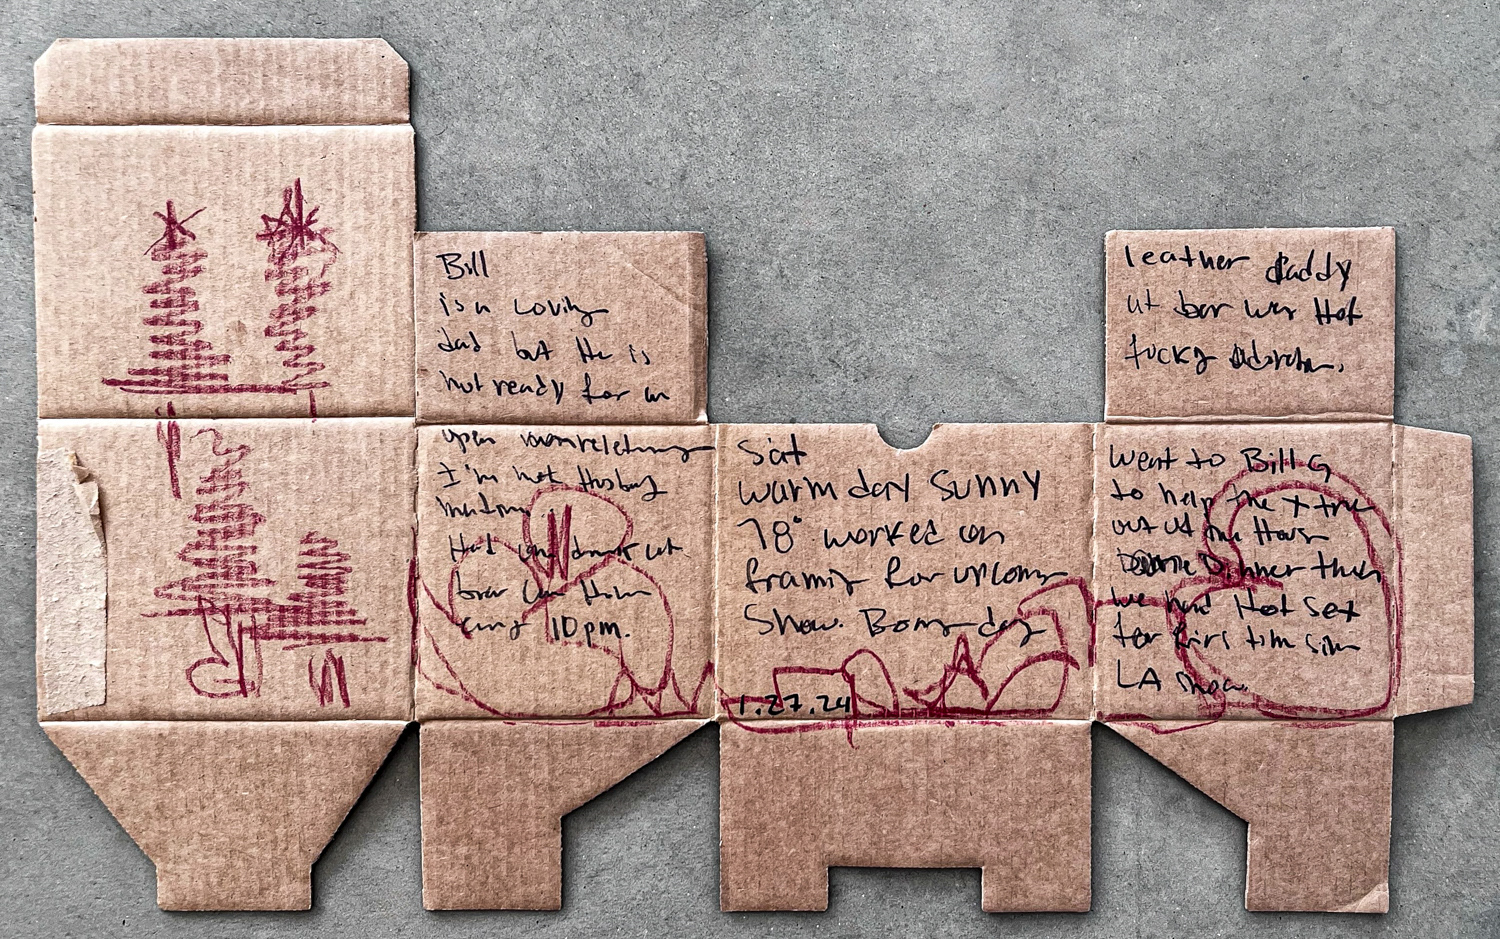 Bill
is a Loving
dad but He is
not ready for an
open
I'm not Husbay

Had one drink at
bar Home
10pm.
Sat
warm day Sunny
78° worked on
framing for upcoming
Show. Bomy day
1.27.24
leather daddy
at bar was Hot
fucky
Went to Bill G
to help the x tree
out of the House
Dinner then
we had Hot Sex
for first tim sin
LA show.